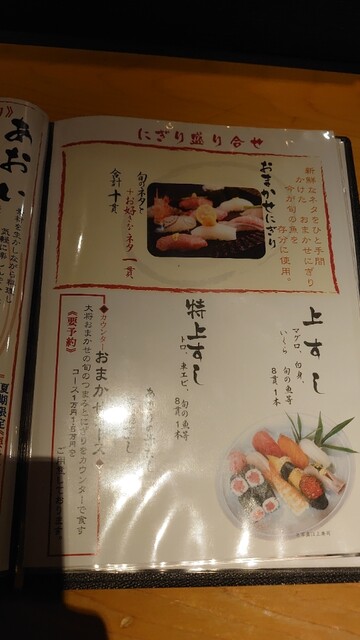 にぎり盛り合せ
新鮮なネタをひと手間
かけた、おまかせにぎり
今が旬の魚を
存分に使用。
おまかせにぎり
旬のネタと
＋お好きなネタ一貫
合計十貫
上すし
マグロ、白身、旬の魚等
いくら
8貫1本
特上すし
トロ、車エビ、旬の魚等
8貫1本
カウンター
おまかせコース
大将おまかせの旬のつまみとにぎりをカウンターで食す
コース1万円
ご用意しております。
《要予約》
あおい
夏期限定